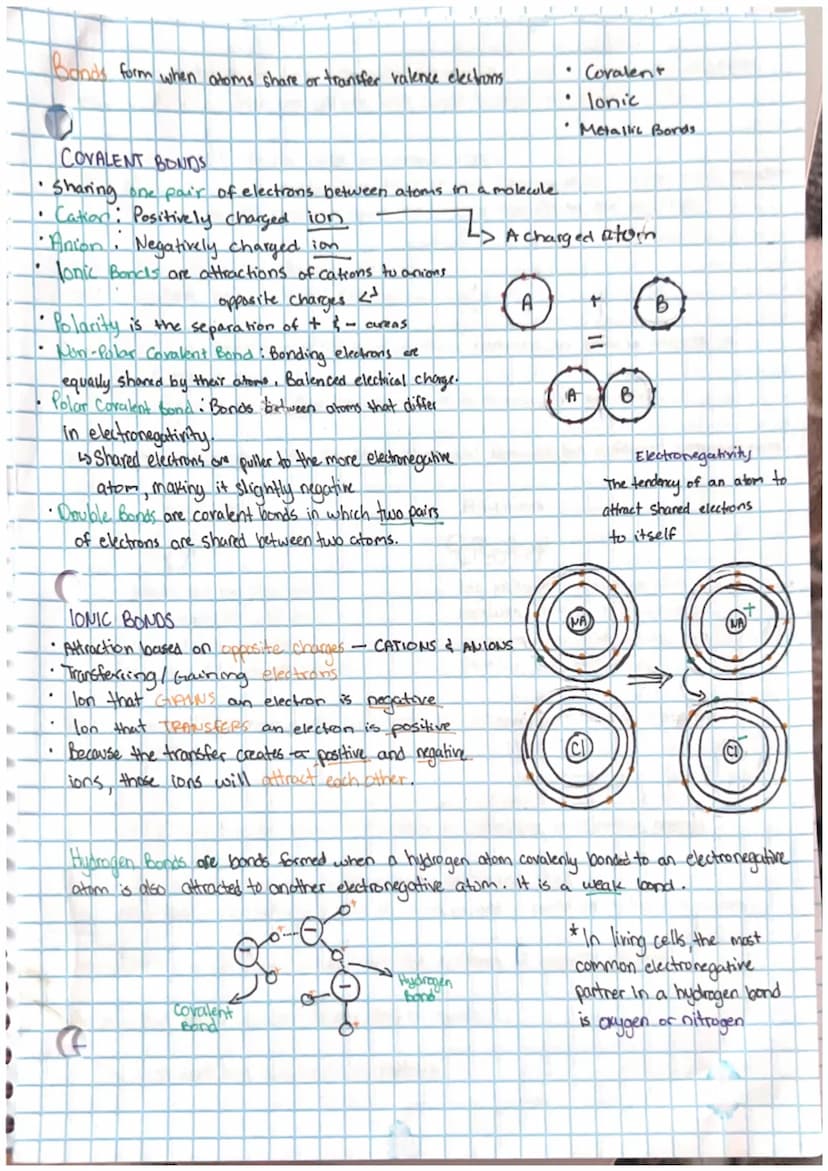 Bonds form when atoms share or transfer valence electrons
• Covalent
• Ionic
• Metallic Bonds
COVALENT BONDS
• Sharing one pair of electrons between atoms in a molecule
• Cation: Positively charged ion
-> A charged atom
• Anion: Negatively charged ion
• Ionic Bonds are attractions of cations to anions
opposite charges
• Polarity is the separation of + & - areas
• Non-Polar Covalent Bond: Bonding electrons are
equally shared by their atoms. Balenced electrical charge.
• Polar Covalent bond: Bonds between atoms that differ
in electronegativity.
↳ Shared electrons are puller to the more electronegative
atom, making it slightly negative
• Double Bonds are covalent bonds in which two pairs
of electrons are shared between two atoms.
A + B
=
A B
Electronegativity
The tendency of an atom to
attract shared electrons
to itself
IONIC BONDS
• Attraction based on opposite charges - CATIONS & ANIONS
• Transferring/Gaining electrons
• Ion that GAINS an electron is negative
• Ion that TRANSFERS an electron is positive
• Because the transfer creates positive and negative
ions, those ions will attract each other.
NA NA+
Cl Cl-
Hydrogen Bonds are bonds formed when a hydrogen atom covalenly bonded to an electronegative
atom is also attracted to another electronegative atom. It is a weak bond.
Covalent
Bond
Hydrogen
Bond
*In living cells, the most
common electronegative
partner in a hydrogen bond
is oxygen or nitrogen